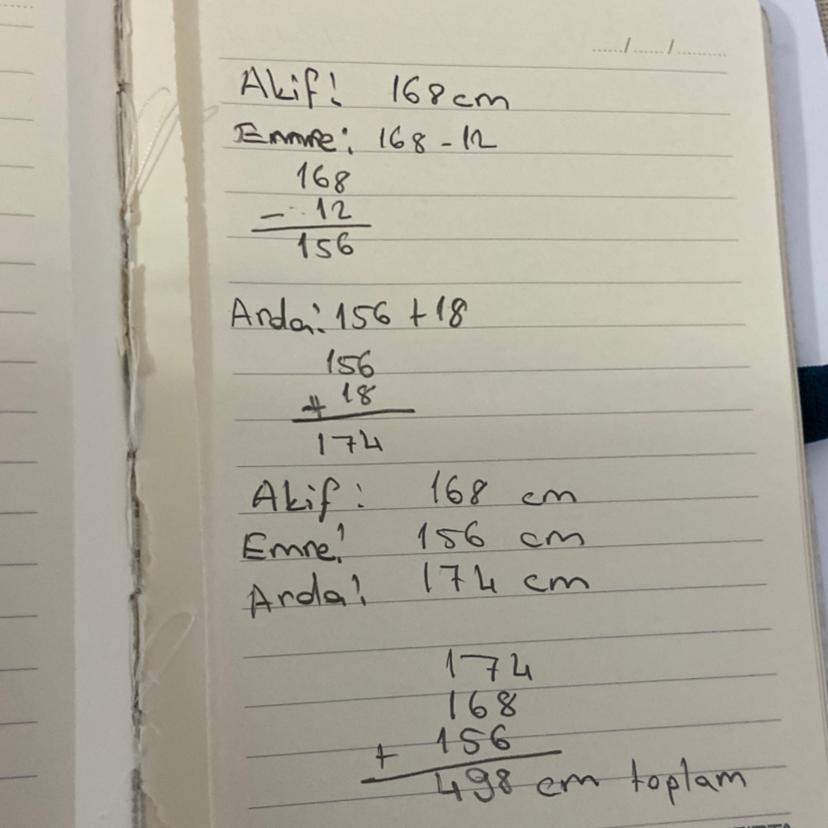 ....../....../..........
Akif: 168 cm
Emre: 168 - 12
168
- 12
156
Arda: 156 + 18
156
+ 18
174
Akif: 168 cm
Emre: 156 cm
Arda: 174 cm
174
168
+ 156
498 cm toplam